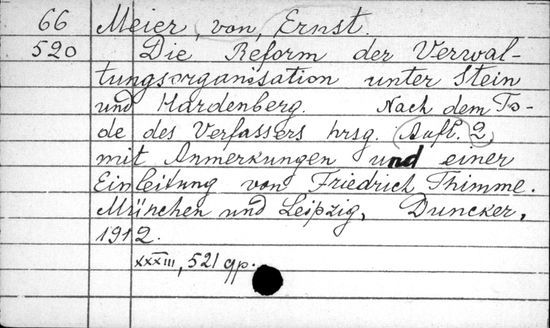 66 Meier, von, Ernst.
520 Die Reform der Verwal-
tungsorganisation unter Stein
und Hardenberg. Nach dem To-
de des Verfassers hrsg. (Aufl. 2)
mit Anmerkungen und einer
Einleitung von Friedrich Thimme.
München und Leipzig, Duncker,
1912.
XXXIII, 521 gp.